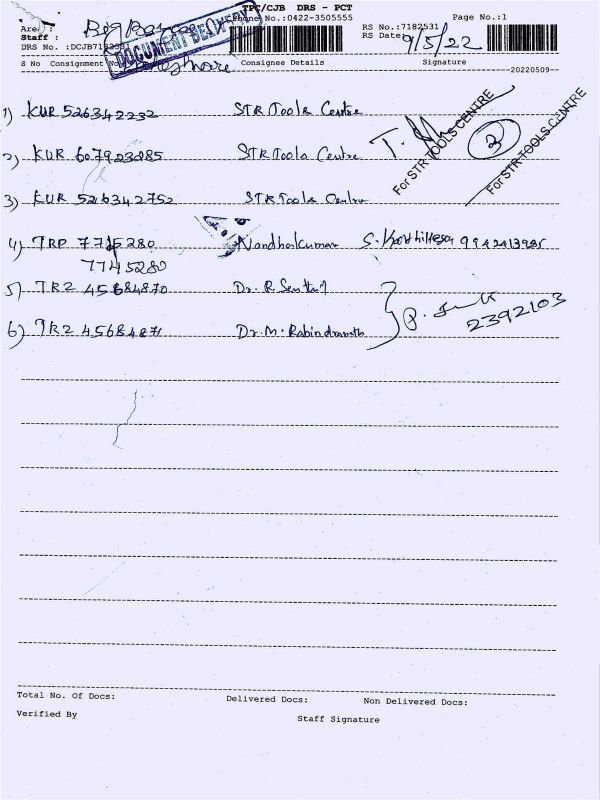 TPC/CJB DRS - PCT
Phone No.:0422-3505555
Page No.:1
Area :
RS No.:7182531
Staff :
RS Date: 9/5/22
DRS No. :DCJB7182531
DOCUMENT
S No Consignment No Consignee Details Signature
20220509
1) KUR 526342232 STR Tools Centre
2) KUR 607923285 STR Tools Centre
For STR TOOLS CENTRE
For STR TOOLS CENTRE
3) KUR 526342752 STR Tools Centre
4) TRP 7745280 Nandhakumar 9942413985
7745280
5) TRZ 45684870 Dr. R Senthil
2392103
6) TRZ 45684871 Dr. M. Rabindranath
Total No. Of Docs: Delivered Docs: Non Delivered Docs:
Verified By
Staff Signature